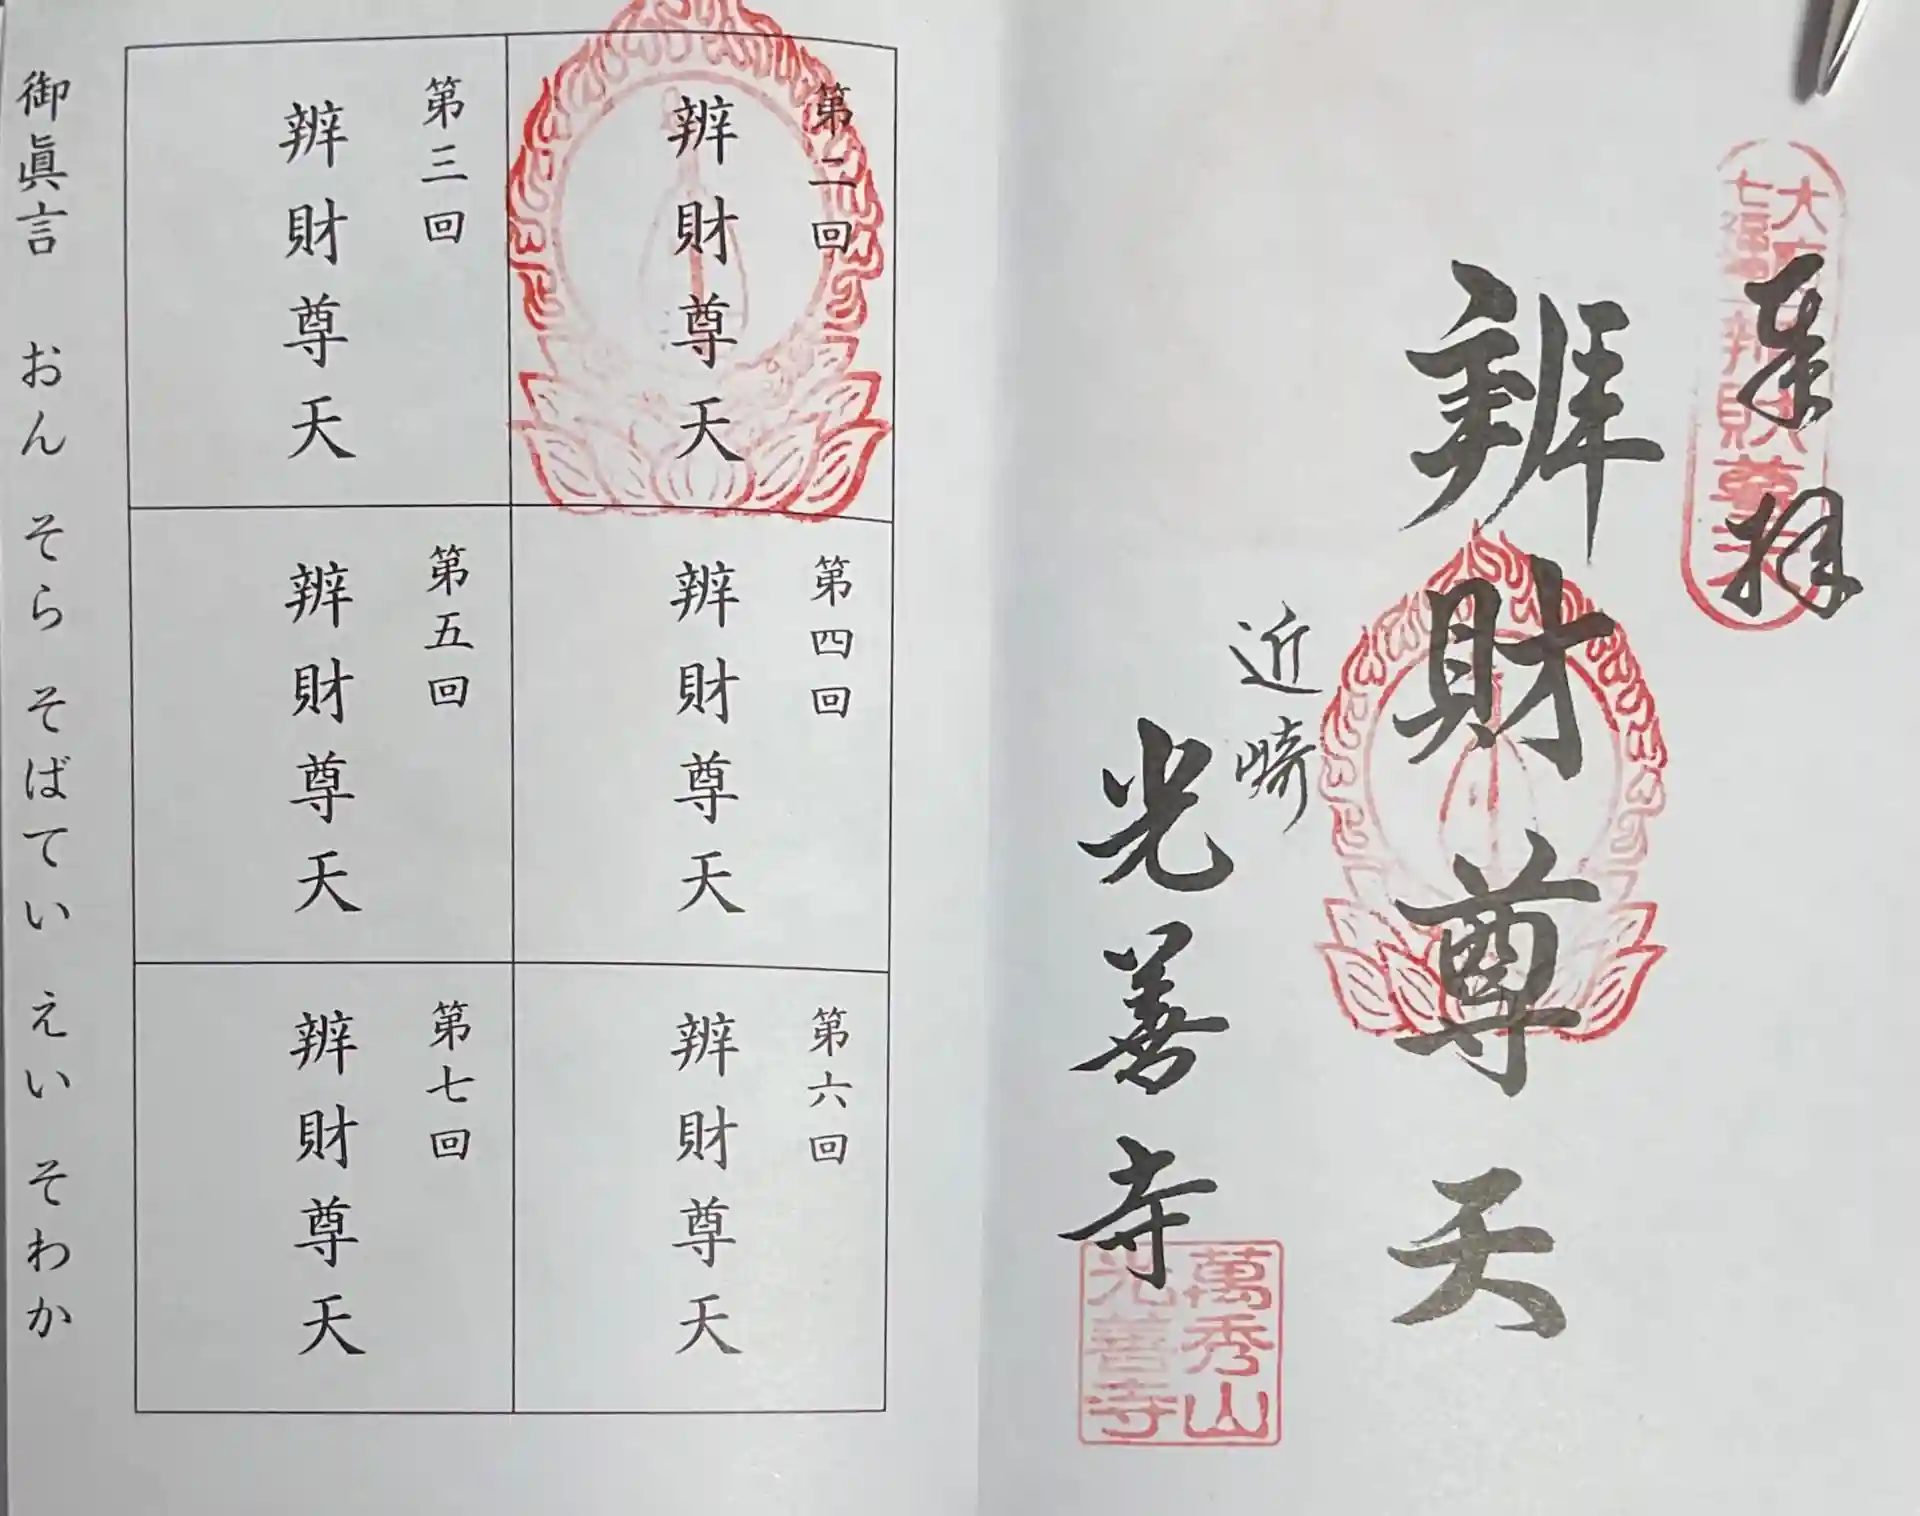 奉拝
大府七福 辨財尊天
辨財尊天
近崎
光善寺
萬秀山
光善寺
第二回
辨財尊天
第三回
辨財尊天
第四回
辨財尊天
第五回
辨財尊天
第六回
辨財尊天
第七回
辨財尊天
御眞言 おん そら そばてい えい そわか